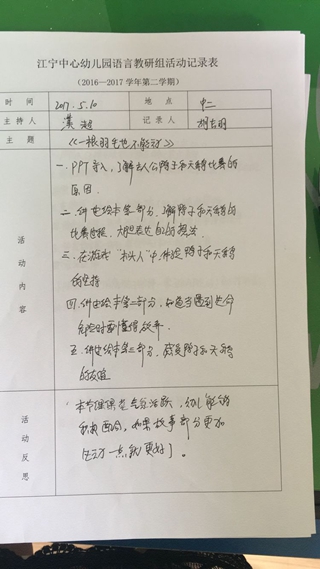 江宁中心幼儿园语言教研组活动记录表
(2016—2017 学年第二学期)
时 间 2017.5.10 地 点 中二
主 持 人 记 录 人
主 题 《一根羽毛也不能动》
一.PPT导入,了解主人公鸭子和天鹅比赛的
原因.
二.讲述绘本第一部分,了解鸭子和天鹅的
比赛过程,大胆表达自己的想法.
三.在游戏“木头人”中体验鸭子和天鹅
的坚持
四.讲述绘本第二部分,知道当遇到生命
危险时要懂得放弃.
五.讲述绘本第三部分,感受鸭子和天鹅
的友谊
活动内容
本节课课堂气氛活跃,幼儿能够
积极回答,如果故事部分更加
生动一点就更好了。
活动反思